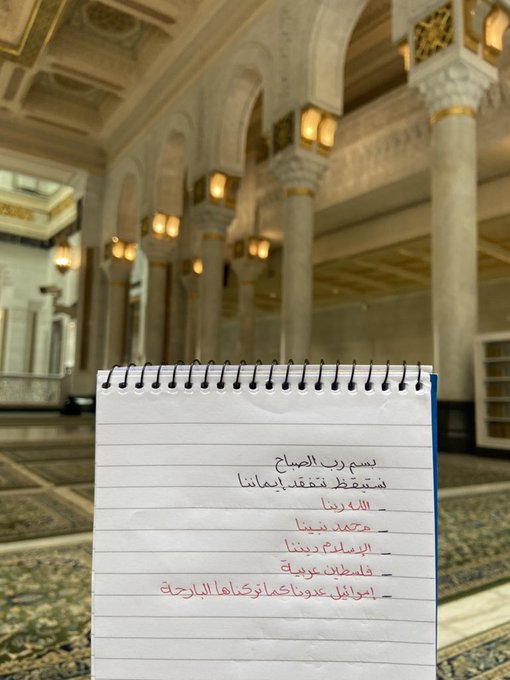 بسم رب الصباح
نستيقظ نتفقد إيماننا
_ الله ربنا
_ محمد نبينا
_ الإسلام ديننا
_ فلسطين عربية
_ إسرائيل عدونا كما تركناها البارحة